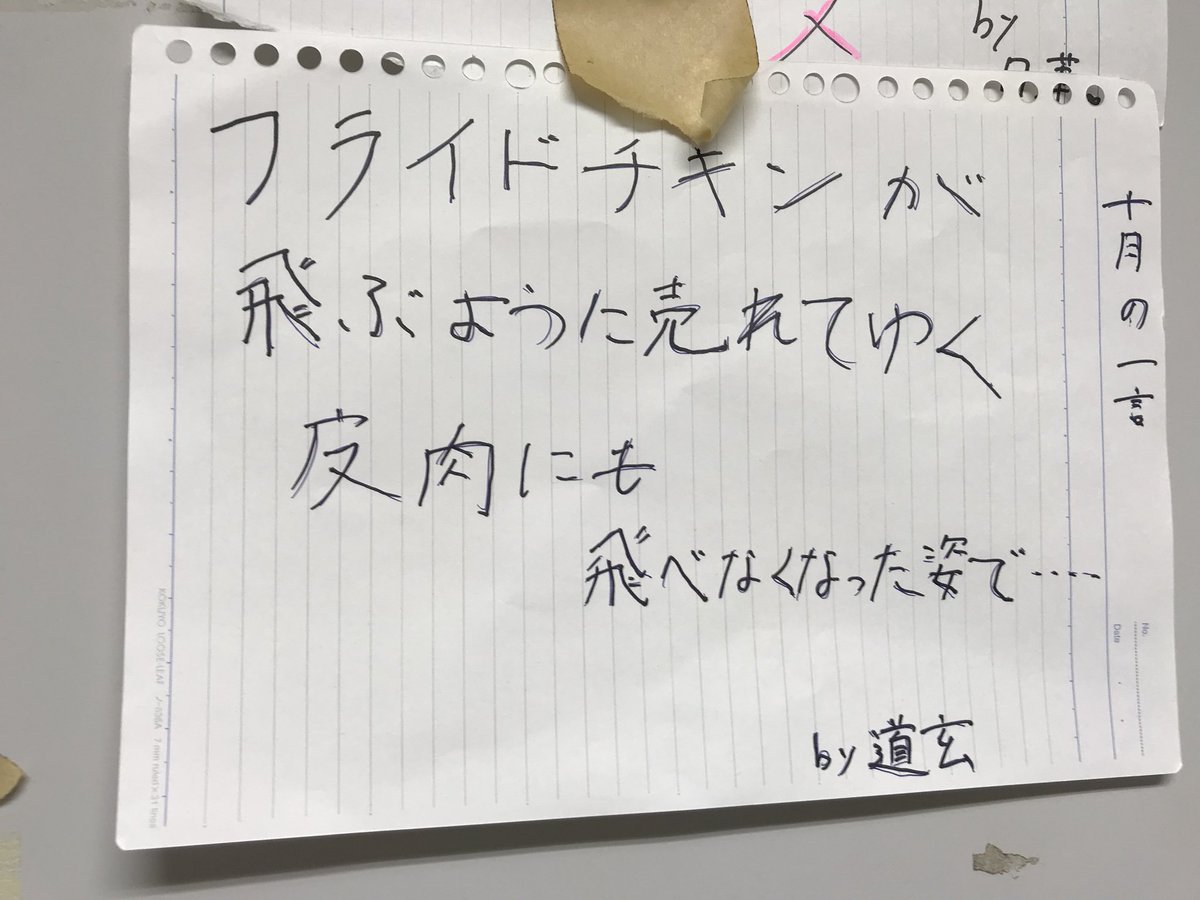 by
フライドチキンが
飛ぶように売れてゆく
皮肉にも
飛べなくなった姿で……
by 道玄
十月の一言
No.
Date
KOKUYO LOOSE-LEAF ノ-836A 7 mm ruled×31 lines